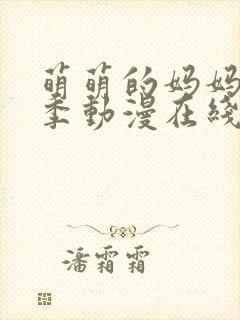 萌萌的妈妈
季動漫在綫
潘霜霜